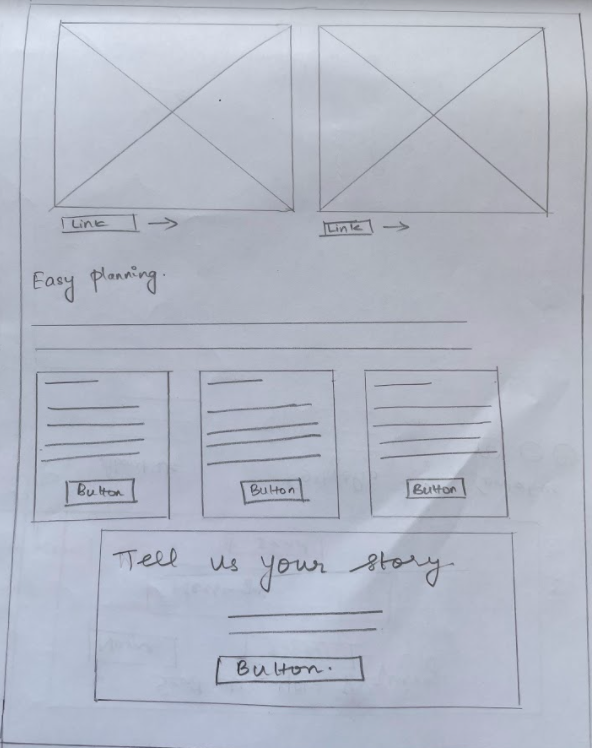 Link →
Link →
Easy planning.
Button
Button
Button
Tell us your story
Button.